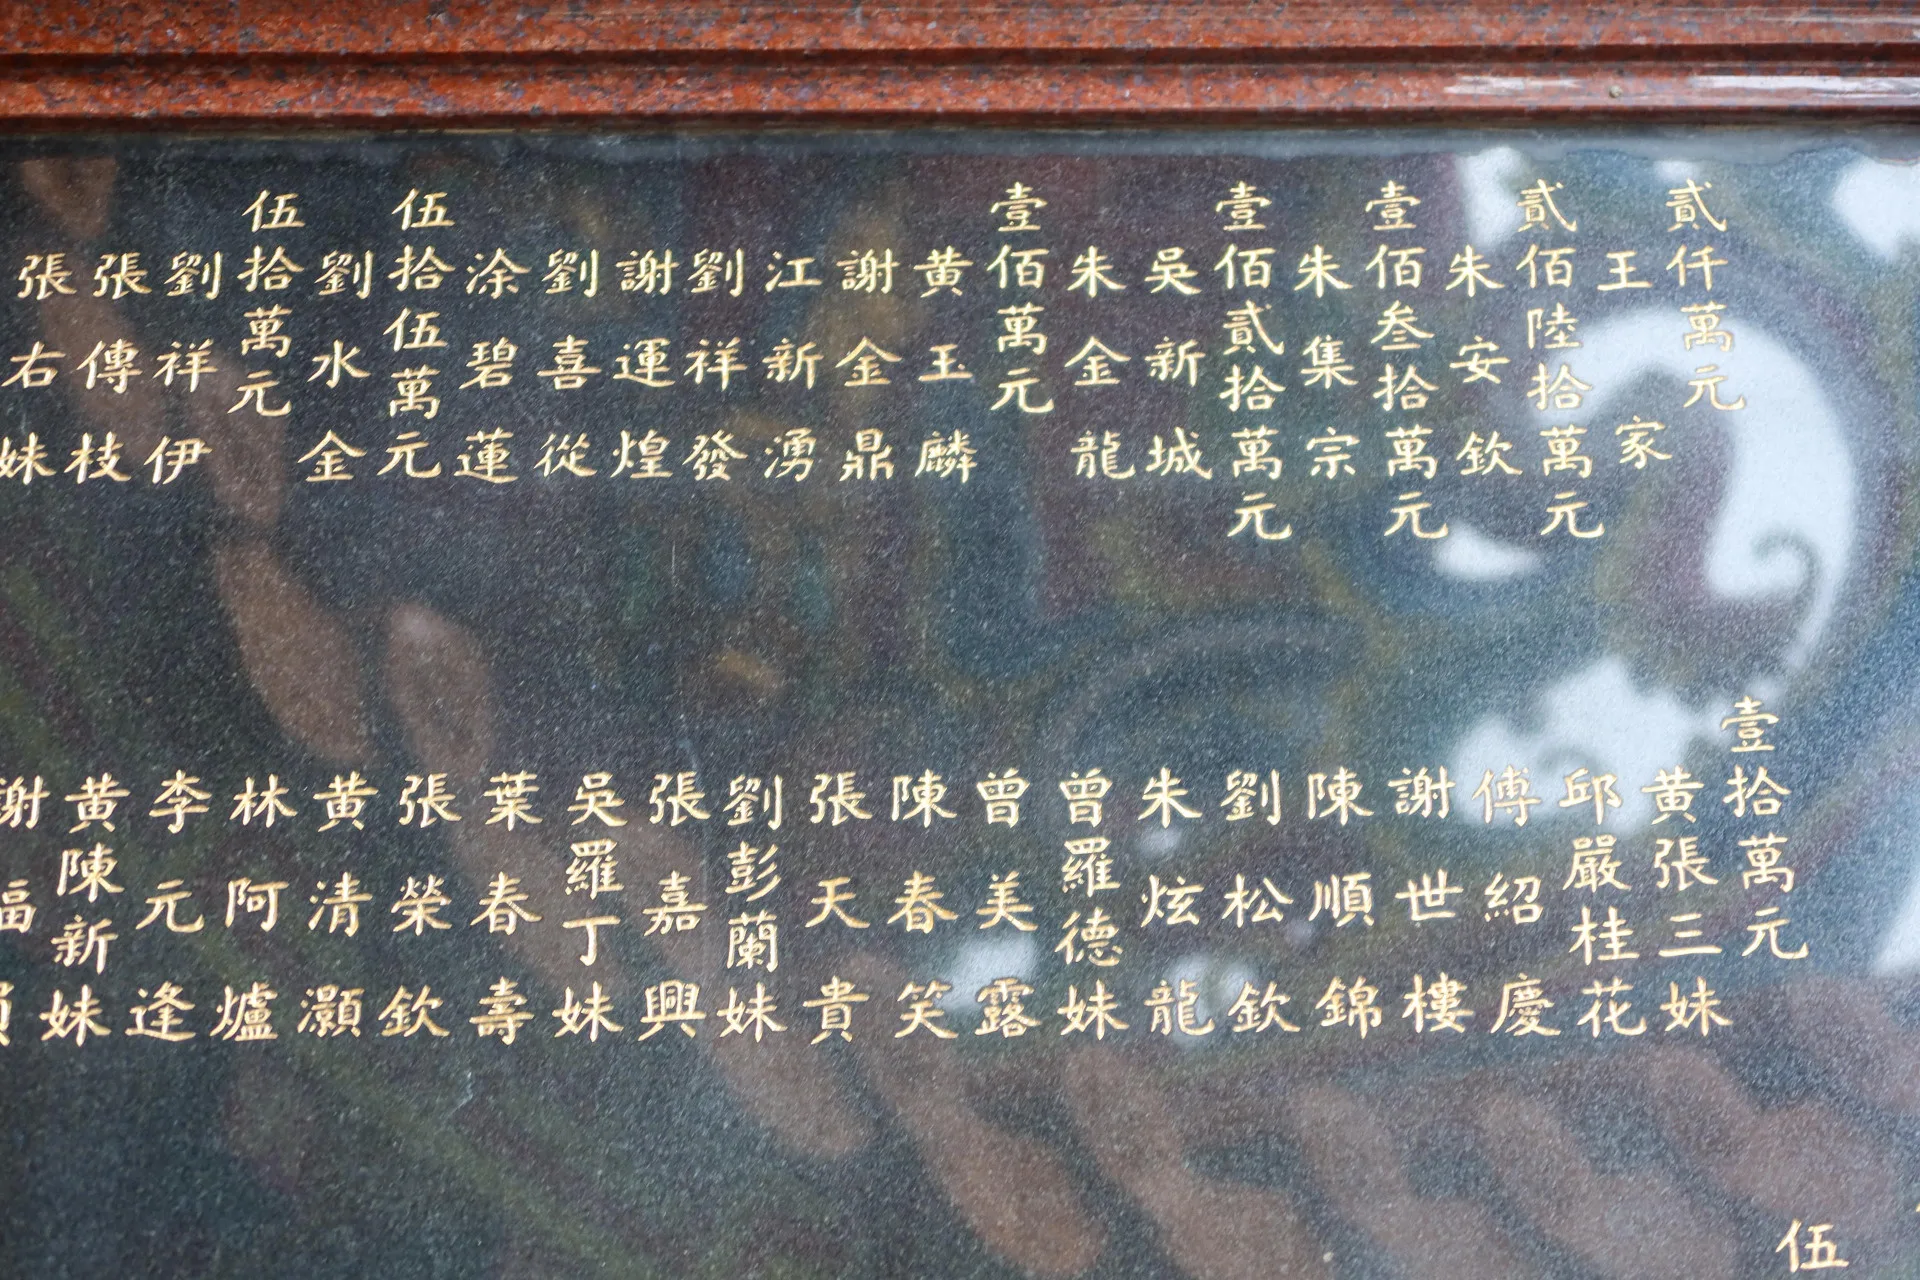 貳仟萬元
王家
貳佰陸拾萬元
朱安欽
壹佰叁拾萬元
朱集宗
壹佰貳拾萬元
吳新城
朱金龍
壹佰萬元
黃玉麟
謝金鼎
江新湧
劉祥發
謝運煌
劉喜從
涂碧蓮
伍拾伍萬元
劉水金
伍拾萬元
劉祥伊
張傳枝
張右妹
壹拾萬元
黃張三妹
邱嚴桂花
傅紹慶
謝世樓
陳順錦
劉松欽
朱炫龍
曾羅德妹
曾美露
陳春笑
張天貴
劉彭蘭妹
張嘉興
吳羅丁妹
葉春壽
張榮欽
黃清灝
林阿爐
李元逢
黃陳新妹
謝福
伍